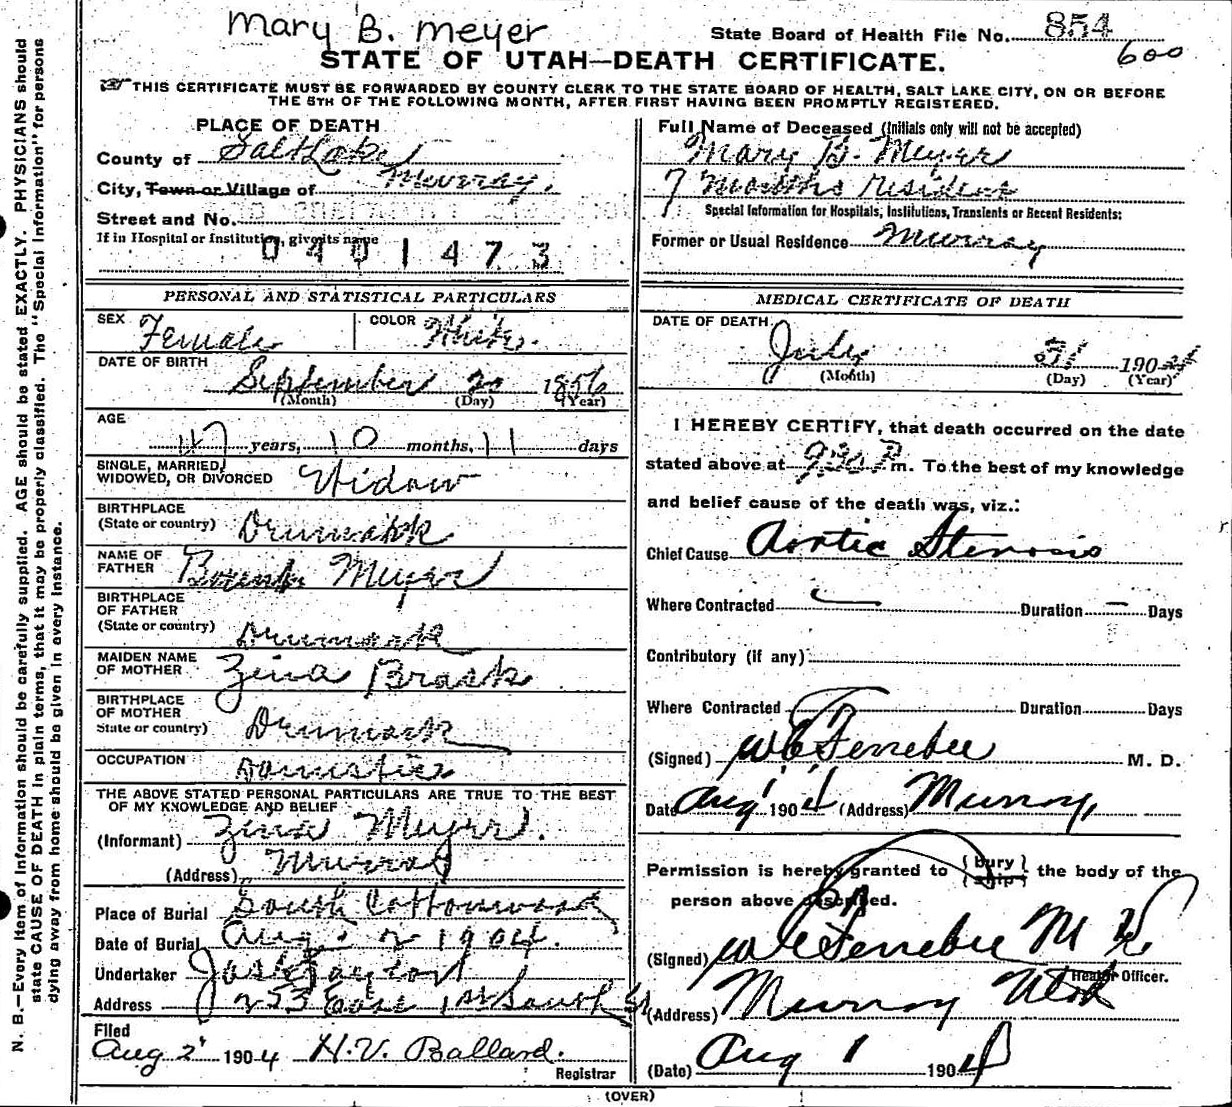 Mary B. Meyer
State Board of Health File No. 854
600
STATE OF UTAH—DEATH CERTIFICATE.
THIS CERTIFICATE MUST BE FORWARDED BY COUNTY CLERK TO THE STATE BOARD OF HEALTH, SALT LAKE CITY, ON OR BEFORE
THE 5TH OF THE FOLLOWING MONTH, AFTER FIRST HAVING BEEN PROMPTLY REGISTERED.
N. B.—Every item of information should be carefully supplied. AGE should be stated EXACTLY. PHYSICIANS should
state CAUSE OF DEATH in plain terms, that it may be properly classified. The "Special Information" for persons
dying away from home should be given in every instance.
PLACE OF DEATH
County of Salt Lake
City, Town or Village of Murray.
Street and No.
If in Hospital or Institution, give its name
0401473
PERSONAL AND STATISTICAL PARTICULARS
SEX Female COLOR White.
DATE OF BIRTH
September 20 1856
(Month) (Day) (Year)
AGE
47 years, 10 months, 11 days
SINGLE, MARRIED,
WIDOWED, OR DIVORCED Widow
BIRTHPLACE
(State or country) Denmark
NAME OF
FATHER Meyer
BIRTHPLACE
OF FATHER
(State or country) Denmark
MAIDEN NAME
OF MOTHER Zina Brask
BIRTHPLACE
OF MOTHER
State or country) Denmark
OCCUPATION Domestic
THE ABOVE STATED PERSONAL PARTICULARS ARE TRUE TO THE BEST
OF MY KNOWLEDGE AND BELIEF
(Informant) Zina Meyer.
(Address) Murray
Place of Burial South Cottonwood
Date of Burial Aug. 2 1904.
Undertaker Jos Taylor
Address 253 East 1st South St
Filed
Aug 2 1904 H.V. Ballard.
Registrar
Full Name of Deceased (Initials only will not be accepted)
Mary B. Meyer
7 Months resident
Special Information for Hospitals, Institutions, Transients or Recent Residents:
Former or Usual Residence Murray
MEDICAL CERTIFICATE OF DEATH
DATE OF DEATH
July 31 1904
(Month) (Day) (Year)
I HEREBY CERTIFY, that death occurred on the date
stated above at 9:30 P m. To the best of my knowledge
and belief cause of the death was, viz.:
Chief Cause Aortic Stenosis
Where Contracted — Duration — Days
Contributory (if any)
Where Contracted Duration Days
(Signed) W C Ferrebee M. D.
Date Aug 1 1904 (Address) Murray,
Permission is hereby granted to (bury) (ship) the body of the
person above described.
(Signed) W C Ferrebee M D.
Health Officer.
(Address) Murray Utah
(Date) Aug 1 1904
(OVER)